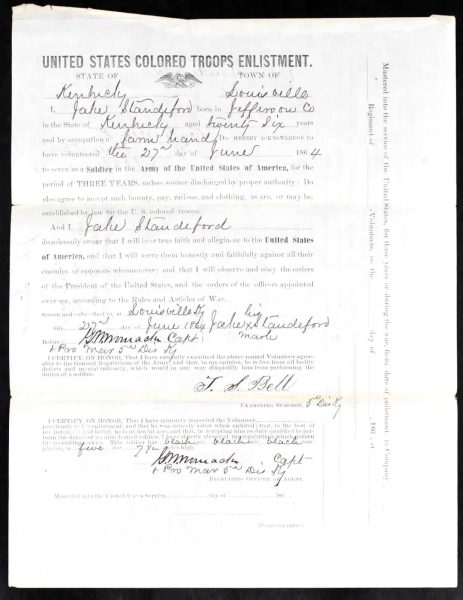 UNITED STATES COLORED TROOPS ENLISTMENT.
STATE OF TOWN OF
Kentucky Louisville
I, Jake Standeford born in Jefferson Co
in the State of Kentucky aged twenty six years
and by occupation a farm hand Do HEREBY ACKNOWLEDGE to
have volunteered the 27th day of June 1864
to serve as a Soldier in the Army of the United States of America, for the
period of THREE YEARS, unless sooner discharged by proper authority; Do
also agree to accept such bounty, pay, rations, and clothing, as are, or may be,
established by law for the U. S. colored troops.
And I Jake Standeford do
solemnly swear that I will bear true faith and allegiance to the United States
of America, and that I will serve them honestly and faithfully against all their
enemies or opposers whomsoever; and that I will observe and obey the orders
of the President of the United States, and the orders of the officers appointed
over me, according to the Rules and Articles of War.
Sworn and subscribed to, at Louisville Ky his
this 27th day of June 1864 Jake x Standeford
Before Capt mark
& Pro Mar 5th Dis Ky
I CERTIFY, ON HONOR, That I have carefully examined the above named Volunteer agree-
ably to the General Regulations of the Army, and that, in my opinion, he is free from all bodily
defects and mental infirmity, which would in any way disqualify him from performing the
duties of a soldier.
T. S. Bell
EXAMINING SURGEON. 5th Dis Ky
I CERTIFY, ON HONOR, That I have minutely inspected the Volunteer,
previously to his enlistment, and that he was entirely sober when enlisted; that, to the best of
my judgment and belief, he is of lawful age; and that, in accepting him as duly qualified to per-
form the duties of an able-bodied soldier, I have strictly observed the regulations which govern
the recruiting service. This soldier has black eyes, black hair, black
five feet 7 1/2 inches high.
Capt
& Pro Mar 5th Dis Ky
RECRUITING OFFICER OR AGENT.
Mustered into the United States Service day of 186
Mustering Officer.
Mustered into the service of the United States, for three years or during the war, from date of enlistment, in Company
Regiment of Volunteers, on the day of 186 , at